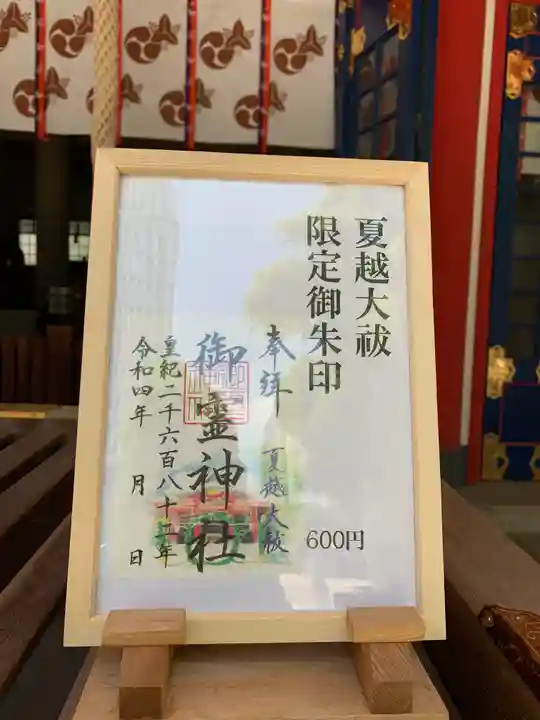 夏越大祓
限定御朱印
600円
奉拝
夏越大祓
御霊神社
皇紀二千六百八十二年
令和四年 月 日